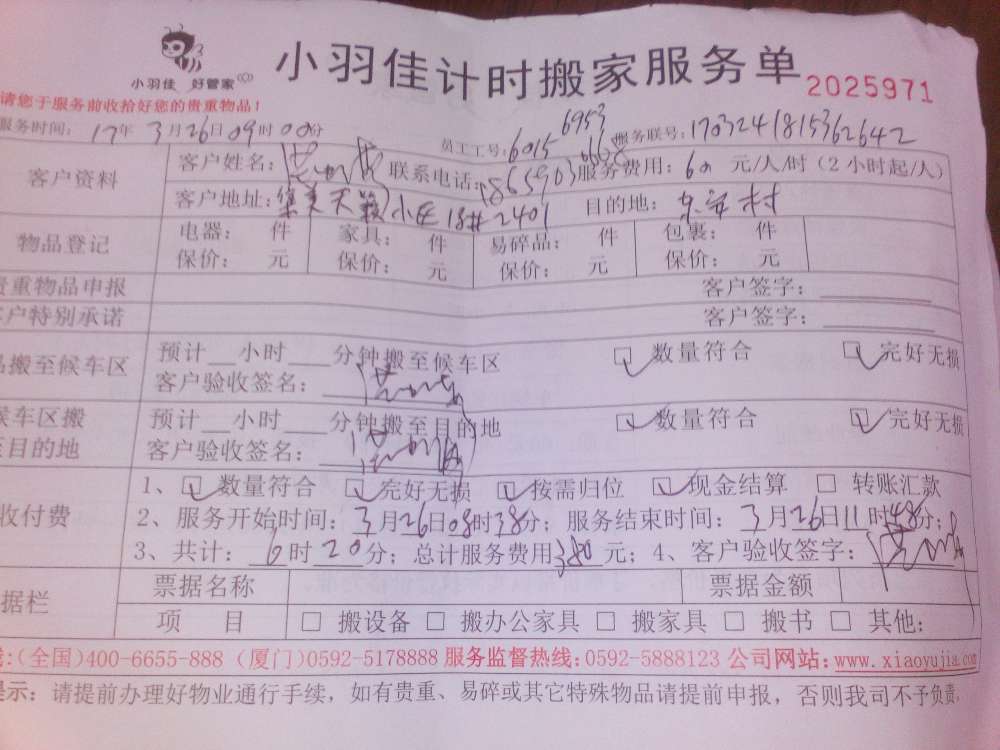 小羽佳 好管家
小羽佳计时搬家服务单 2025971
请您于服务前收拾好您的贵重物品!
服务时间: 17年 3月26日09时00分 员工工号: 6015 6953 6668 服务联号: 1703241815362642
客户资料 客户姓名: 联系电话: 服务费用: 60 元/人/时（2小时起/人）
客户地址: 集美天籁小区18#2401 目的地: 东安村
物品登记 电器: 件 家具: 件 易碎品: 件 包裹: 件
保价: 元 保价: 元 保价: 元 保价: 元
贵重物品申报 客户签字:
客户特别承诺 客户签字:
品搬至候车区 预计 小时 分钟搬至候车区 数量符合 完好无损
客户验收签名:
候车区搬 预计 小时 分钟搬至目的地 数量符合 完好无损
至目的地 客户验收签名:
收付费 1、 数量符合 完好无损 按需归位 现金结算 转账汇款
2、服务开始时间: 3月26日08时38分; 服务结束时间: 3月26日11时48分;
3、共计: 6时20分; 总计服务费用380元; 4、客户验收签字:
据栏 票据名称 票据金额
项 目 搬设备 搬办公家具 搬家具 搬书 其他:
线:(全国)400-6655-888 (厦门)0592-5178888 服务监督热线:0592-5888123 公司网站:www.xiaoyujia.com
提示: 请提前办理好物业通行手续，如有贵重、易碎或其它特殊物品请提前申报，否则我司不予负责